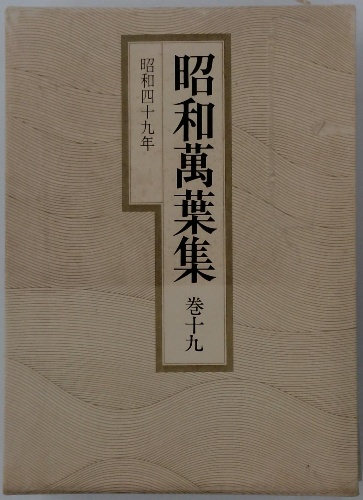 昭和萬葉集 巻十九
昭和四十九年